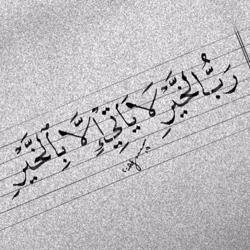 رَبُّ الخَيْرِ لَا يَأتِي إِلَّا بِالخَيْرِ